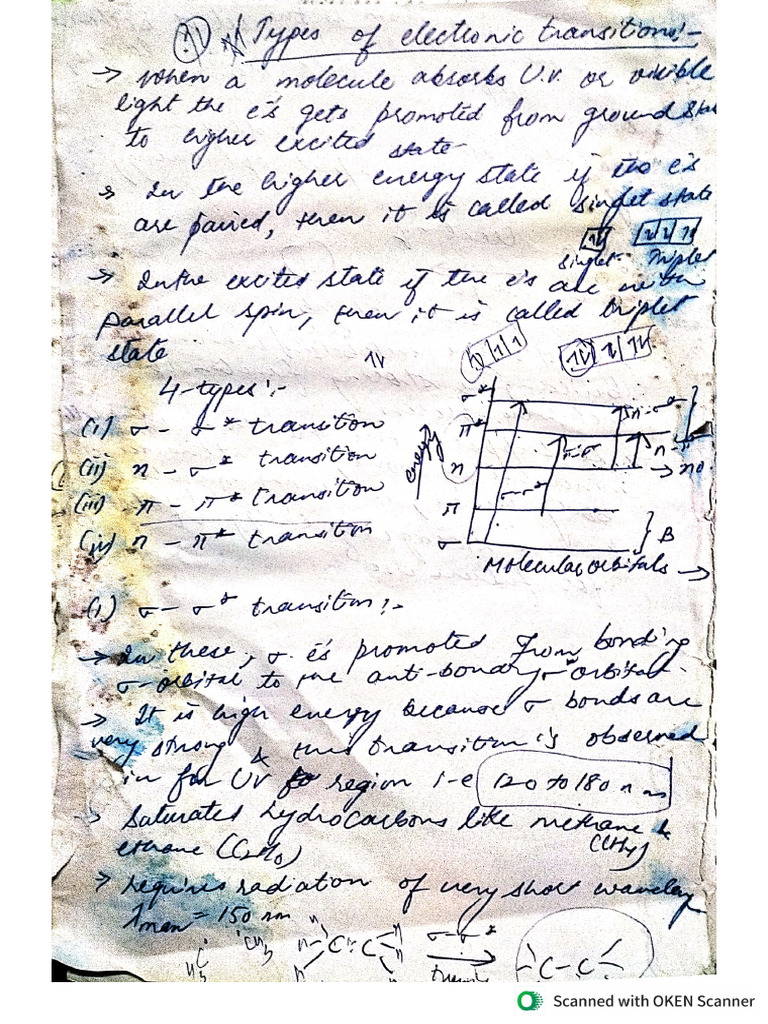 Types of electronic transitions:-
→ when a molecule absorbs U.V. or visible
light the e's gets promoted from ground sta
to higher excited
state-
→ In the higher energy state if the e's
are paired, then it is called singlet state
singlet Triplet
→ In the excited state if the e's are with
parallel spin, then it is called triplet
state
4-types:-
(i) σ - σ* transition
(ii) n - σ* transition
(iii) π - π* transition
(iv) n - π* transition
energy
σ*
π*
n
π
σ
n-σ*
σ-σ*
B
Molecular orbitals →
(i) σ - σ* transition:-
→ In these, σ e's promoted from bonding
σ-orbital to the anti-bonding σ* orbital-
→ It is high energy because σ bonds are
very strong & this transition is observed
in far UV region i-e 120 to 180 nm
→ Saturated hydrocarbons like methane &
(CH4)
ethane (C2H6)
→ requires radiation of very short wavelen
λmax = 150 nm
CH3
σ-σ*
C-C
Scanned with OKEN Scanner